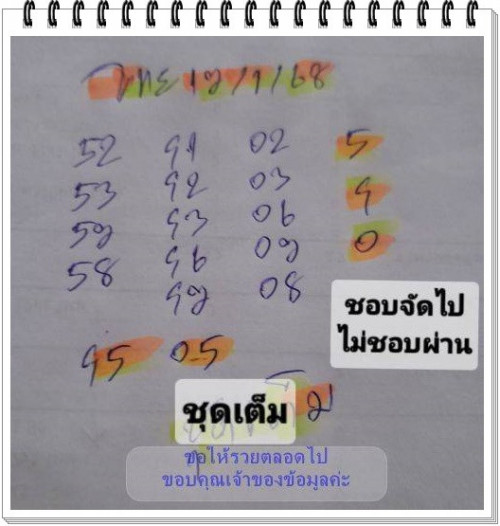 ไทย 17/1/68
52 91 02 5
53 92 03 9
57 93 06 0
58 96 07
97 08
ชอบจัดไป
ไม่ชอบผ่าน
95 05
ชุดเต็ม
ขอให้รวยตลอดไป
ขอบคุณเจ้าของข้อมูลค่ะ